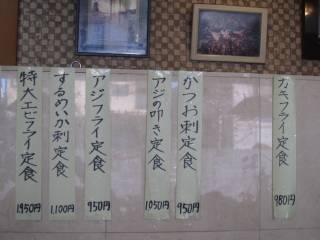 カキフライ定食 980円
かつお刺定食 950円
アジの叩き定食 1050円
アジフライ定食 950円
するめいか刺定食 1,100円
特大エビフライ定食 1,950円